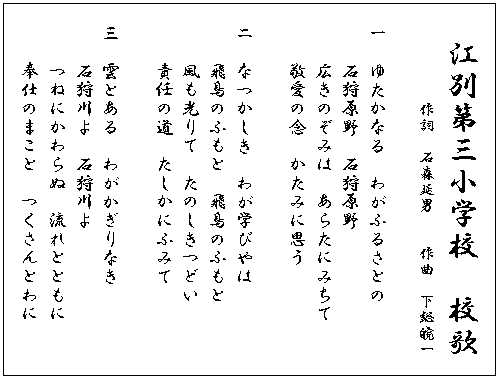 江別第三小学校　校歌
作詞　石森延男　　作曲　下總皖一
一　ゆたかなる　わがふるさとの
石狩原野　石狩原野
広きのぞみは　あらたにみちて
敬愛の念　かたみに思う
二　なつかしき　わが学びやは
飛鳥のふもと　飛鳥のふもと
風も光りて　たのしきつどい
責任の道　たしかにふみて
三　雲とある　わがかぎりなき
石狩川よ　石狩川よ
つねにかわらぬ　流れとともに
奉仕のまこと　つくさんとわに